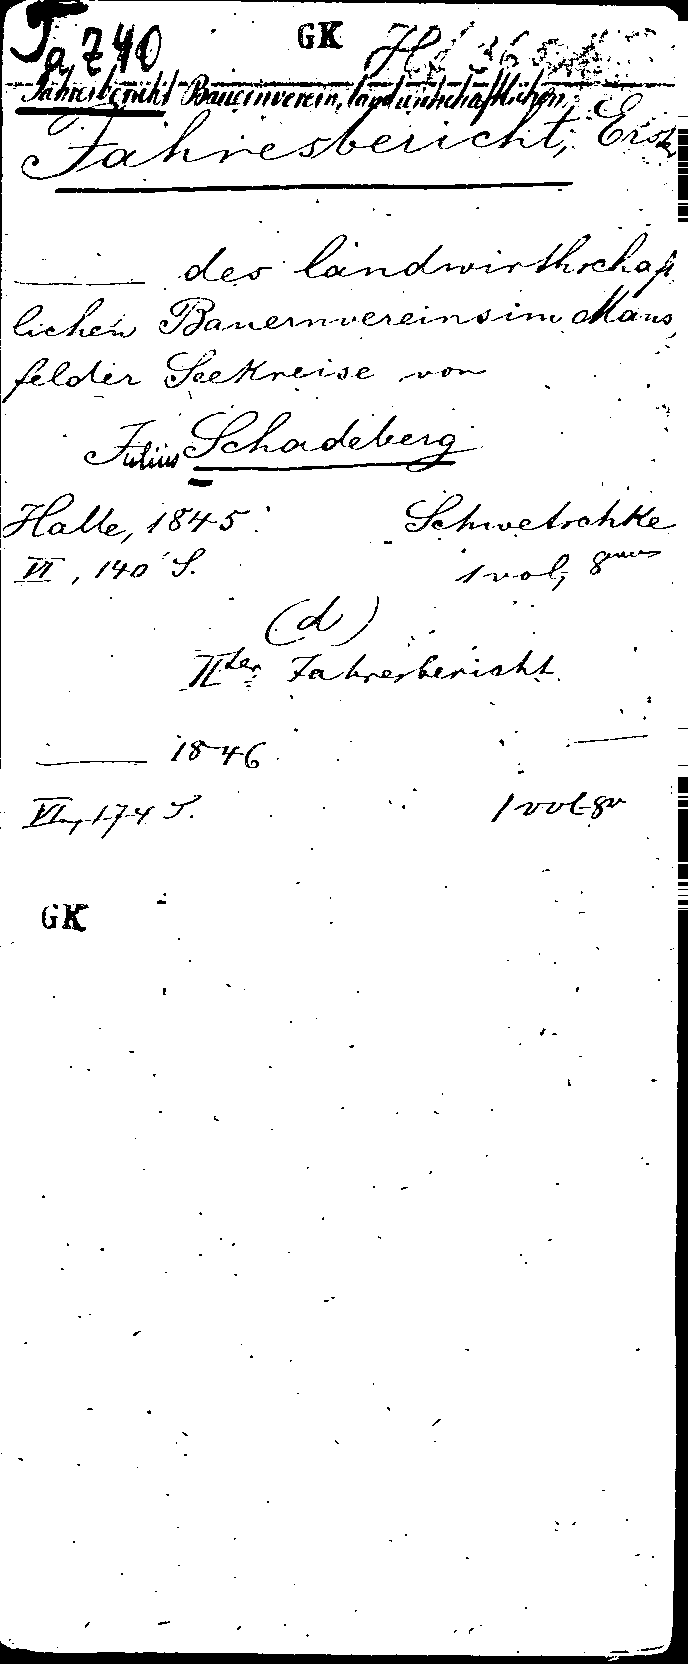 Ta 740 GK
Jahresbericht Bauernverein, landwirthschaftlichen
Jahresbericht, Erst
des landwirthschaft
lichen Bauernvereins im Mans
felder Seekreise von
Julius Schadeberg
Halle, 1845. Schwetschke
VI, 140 S. 1 vol,
(d)
IIter Jahresbericht
1846
VI, 174 S. 1 vol 8v
GK